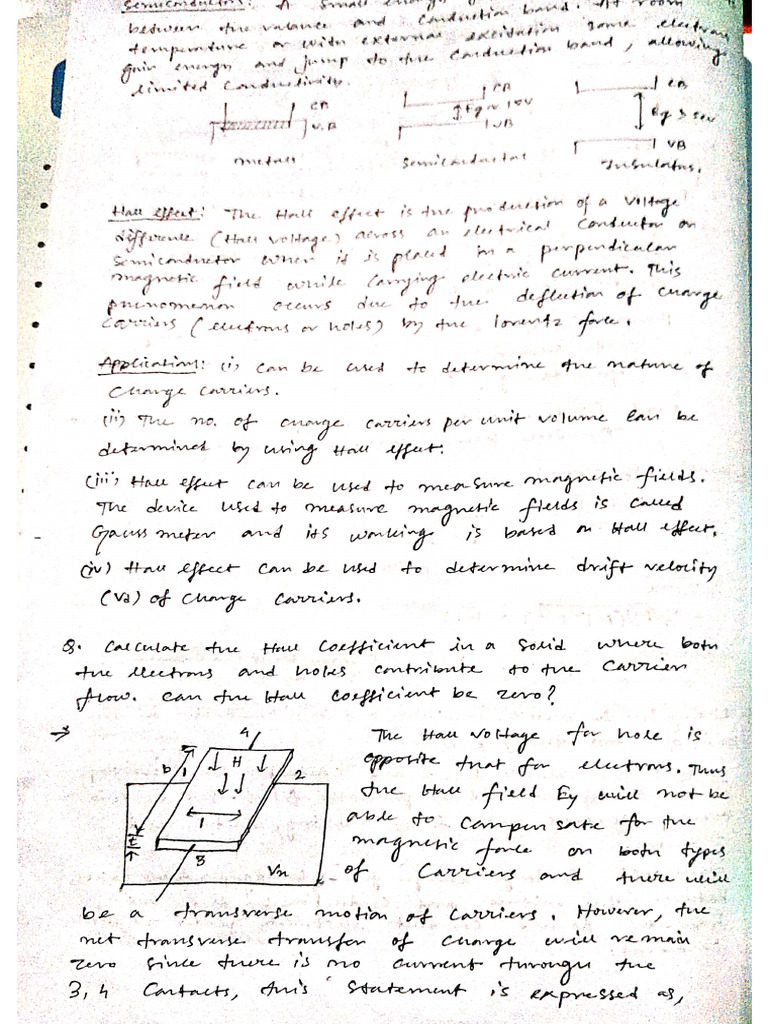 Semiconductors: A small energy
between the valance and conduction band. At room
temperature or with external excitation some electron
gain energy and jump to the conduction band, allowing
limited conductivity.
CB
V.B
metall
CB
Eg ~ 1ev
VB
Semiconductor
CB
Eg > 5ev
VB
Insulators.
Hall effect: The Hall effect is the production of a voltage
difference (Hall voltage) across an electrical conductor or
semiconductor when it is placed in a perpendicular
magnetic field while carrying electric current. This
phenomenon occurs due to the deflection of charge
carriers (electrons or holes) by the lorentz force.
Applications: (i) can be used to determine the nature of
charge carriers.
(ii) The no. of charge carriers per unit volume can be
determined by using Hall effect.
(iii) Hall effect can be used to measure magnetic fields.
The device used to measure magnetic fields is called
Gauss meter and its working is based on Hall effect.
(iv) Hall effect can be used to determine drift velocity
(vd) of charge carriers.
Q. Calculate the Hall Coefficient in a solid where both
the electrons and holes contribute to the carrier
flow. Can the Hall coefficient be zero?
→
4
b
1
H
2
l
t
3
The Hall voltage for hole is
opposite that for electrons. Thus
the Hall field Ey will not be
able to compensate for the
magnetic force on both types
of carriers and there will
be a transverse motion of carriers. However, the
net transverse transfer of charge will remain
zero since there is no current through the
3, 4 contacts, this statement is expressed as,